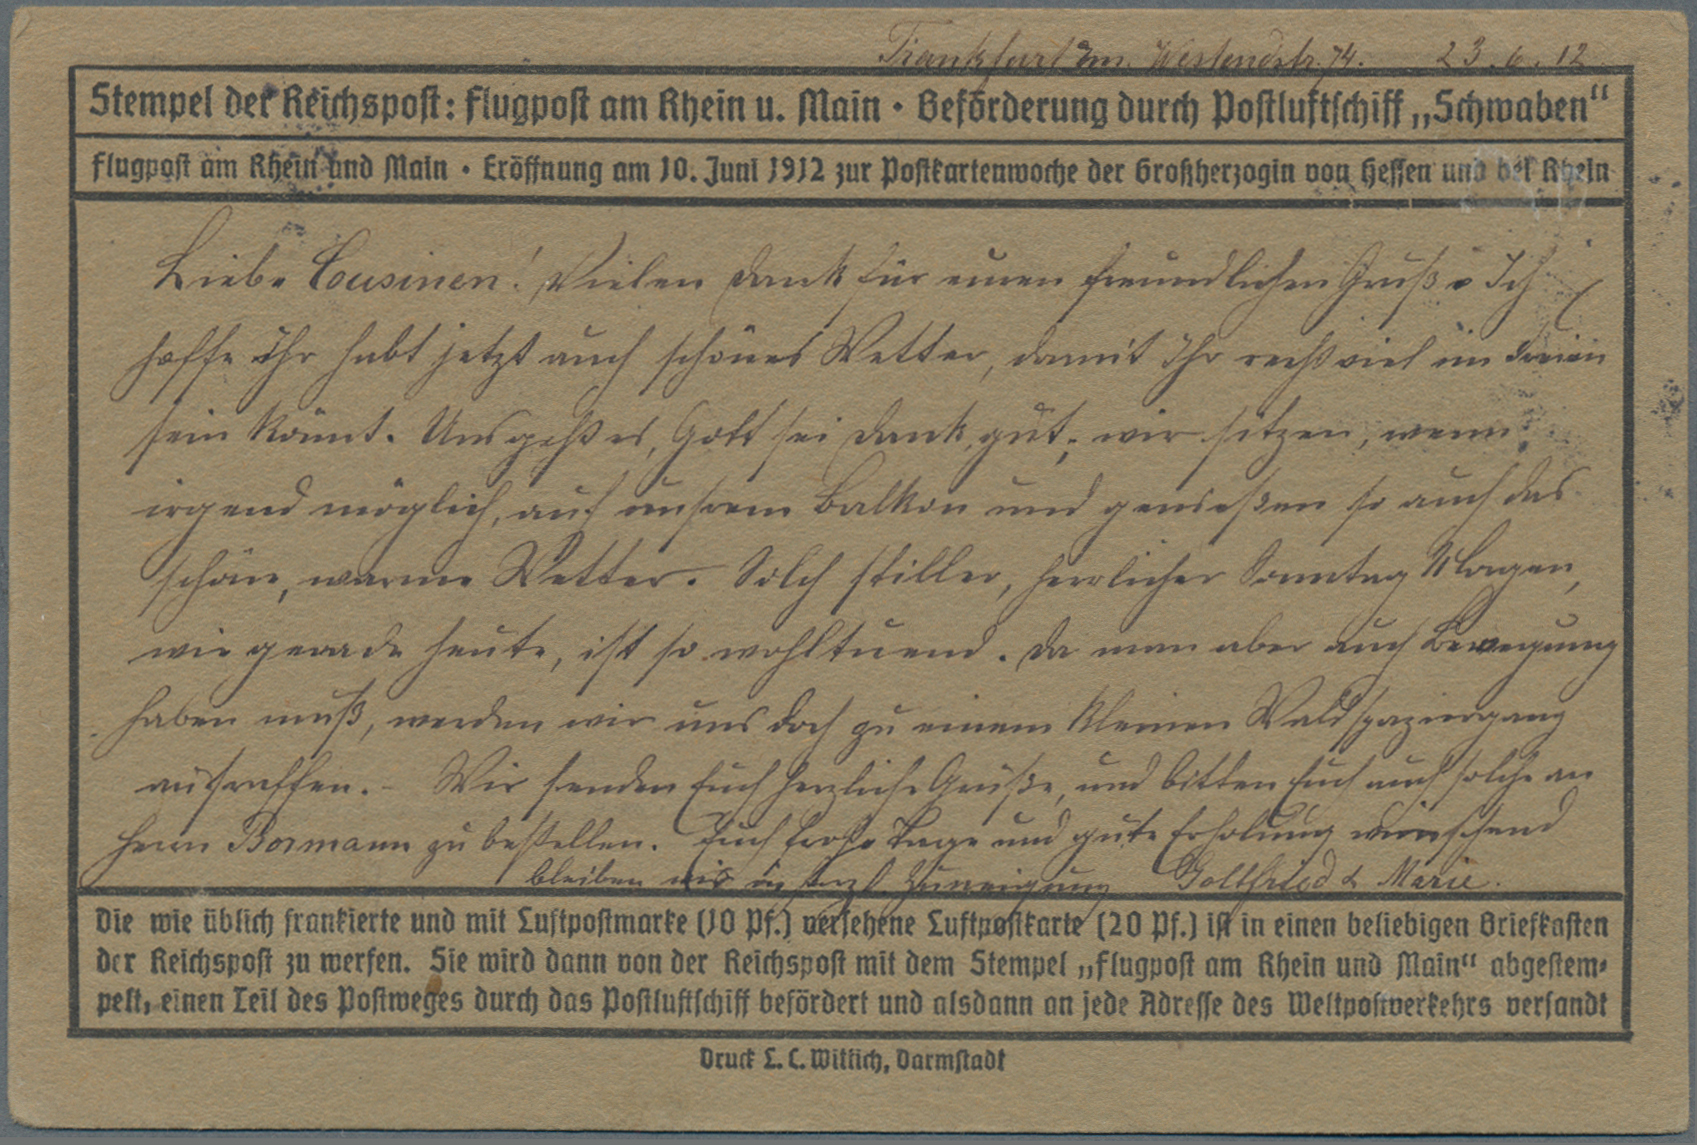 Frankfurt a/m. Westendstr. 74. 23.6.12
Stempel der Reichspost: Flugpost am Rhein u. Main · Beförderung durch Postluftschiff „Schwaben“
Flugpost am Rhein und Main · Eröffnung am 10. Juni 1912 zur Postkartenwoche der Großherzogin von Hessen und bei Rhein
Liebe Cousinen! Vielen Dank für euren freundlichen Gruß. Ich
hoffe Ihr habt jetzt auch schönes Wetter, damit Ihr recht viel im Freien
sein könnt. Uns geht es, Gott sei Dank, gut; wir sitzen, wenn
irgend möglich, auf unsrem Balkon und genießen so auch das
schöne, warme Wetter. Solch stiller, herrlicher Sonntag Morgen,
wie gerade heute, ist so wohltuend. Da man aber auch Bewegung
haben muß, werden wir uns doch zu einem kleinen Waldspaziergang
aufraffen. – Wir senden Euch herzliche Grüße, und bitten Euch auch solche an
Herrn Bormann zu bestellen. Euch frohe Tage und gute Erholung wünschend
bleiben wir in herzl. Zuneigung Gottfried & Marie.
Die wie üblich frankierte und mit Luftpostmarke (10 Pf.) versehene Luftpostkarte (20 Pf.) ist in einen beliebigen Briefkasten
der Reichspost zu werfen. Sie wird dann von der Reichspost mit dem Stempel „Flugpost am Rhein und Main“ abgestem-
pelt, einen Teil des Postweges durch das Postluftschiff befördert und alsdann an jede Adresse des Weltpostverkehrs versandt
Druck L. C. Wittich, Darmstadt